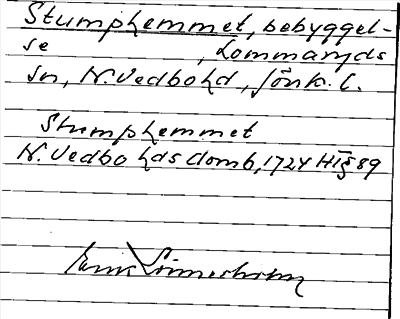 Stumphemmet, bebyggel-
se , Lommaryds
sn, N. Vedbo hd, Jönk. l.
Stumphemmet
N. Vedbo hds domb, 1724 HT § 89